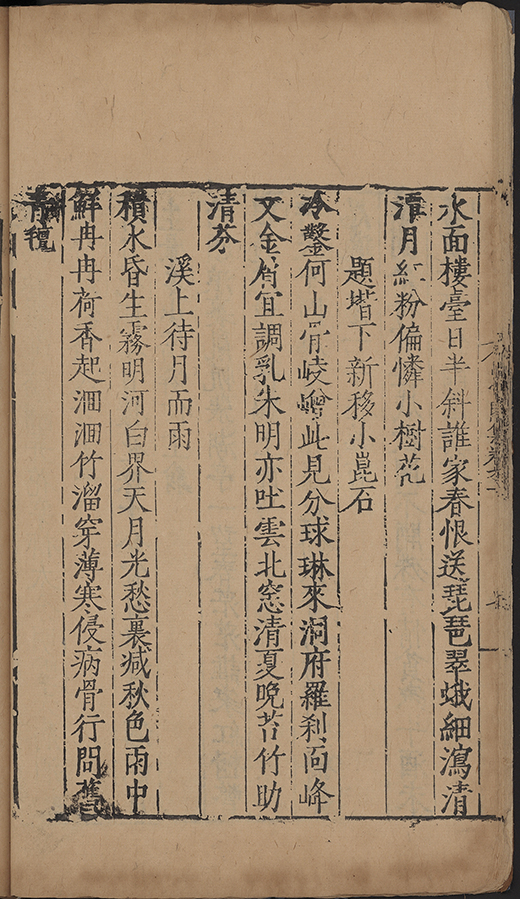 水面樓臺日半斜誰家春恨送琵琶翠蛾細瀉清
月紅粉偏憐小樹花
題堦下新移小崑石
冷鑿何山骨崚嶒此見分球琳來洞府羅刹面峰
文金屑宜調乳朱明亦吐雲北窓清夏晩苔竹助
清芬
溪上待月而雨
積水昏生霧明河白界天月光愁裏减秋色雨中
鮮冉冉荷香起涸涸竹溜穿薄寒侵病骨行問舊
青氊